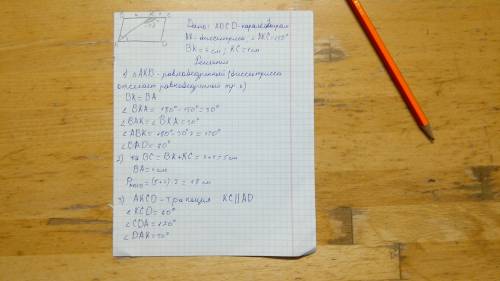 Дано: ABCD - параллелограм
AK - биссектриса; ∠AKC = 150°
BK = 4 см; KC = 1 см
Решение
1) △AKB - равнобедренный (биссектриса
отсекает равнобедренный тр.)
BK = BA
∠BKA = 180° - 150° = 30°
∠BAK = ∠BKA = 30°
∠ABK = 180° - 30°·2 = 120°
∠BAD = 60°
BC = BK + KC = 4+1 = 5 см
BA = 4 см
= 18 см
3) AKCD - трапеция KC || AD
∠KCD = 60°
∠CDA = 120°
∠DAK = 30°